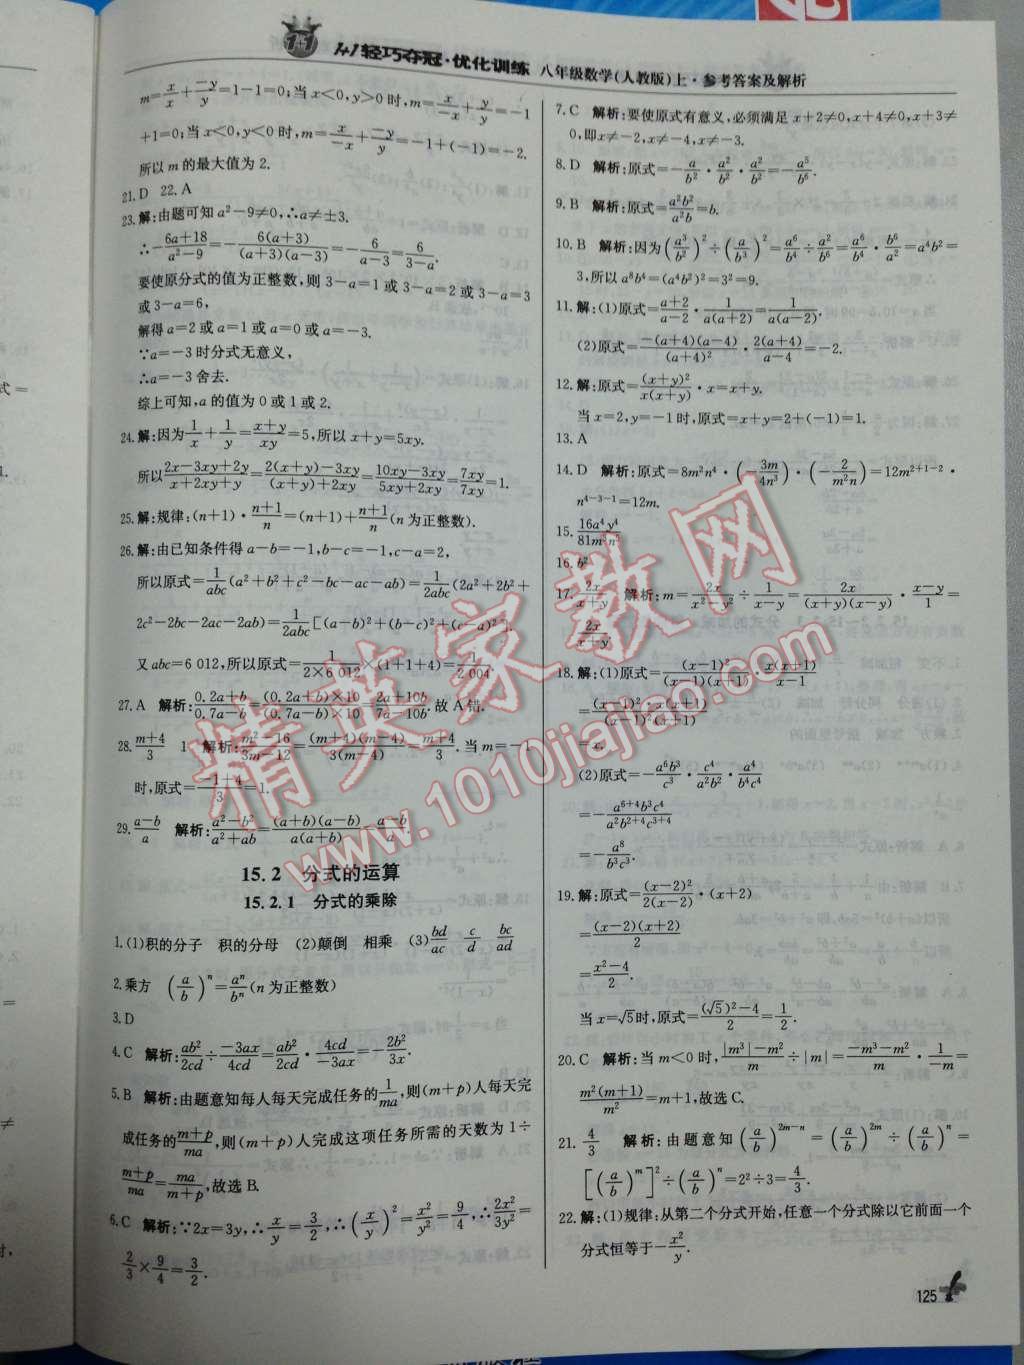 1+1轻巧夺冠·优化训练 八年级数学(人教版)上·参考答案及解析
m=x/x+(-y)/y=1-1=0;当x<0,y>0时,m=x/(-x)+y/y=-1
+1=0;当x<0,y<0时,m=x/(-x)+(-y)/y=-1+(-1)=-2.
所以m的最大值为2.
21.D 22.A
23.解:由题可知a²-9≠0,∴a≠±3.
∴-(6a+18)/(a²-9)=-6(a+3)/((a+3)(a-3))=-6/(a-3)=6/(3-a).
要使原分式的值为正整数,则3-a=1或3-a=2或3-a=3
或3-a=6,
解得a=2或a=1或a=0或a=-3.
∵a=-3时分式无意义,
∴a=-3舍去.
综上可知,a的值为0或1或2.
24.解:因为1/x+1/y=(x+y)/xy=5,所以x+y=5xy.
所以(2x-3xy+2y)/(x+2xy+y)=(2(x+y)-3xy)/((x+y)+2xy)=(10xy-3xy)/(5xy+2xy)=7xy/7xy=1.
25.解:规律:(n+1)·(n+1)/n=(n+1)+(n+1)/n(n为正整数).
26.解:由已知条件得a-b=-1,b-c=-1,c-a=2,
所以原式=1/abc(a²+b²+c²-bc-ac-ab)=1/2abc(2a²+2b²+
2c²-2bc-2ac-2ab)=1/2abc[(a-b)²+(b-c)²+(c-a)²].
又abc=6 012,所以原式=1/(2×6 012)×(1+1+4)=1/2 004.
27.A 解析:(0.2a+b)/(0.7a-b)=((0.2a+b)×10)/((0.7a-b)×10)=(2a+10b)/(7a-10b).故A错.
28.(m+4)/3 1 解析:(m²-16)/(3m-12)=((m+4)(m-4))/(3(m-4))=(m+4)/3.当m=-1
时,原式=(-1+4)/3=1.
29.(a-b)/a 解析:(a²-b²)/(a²+ab)=((a+b)(a-b))/(a(a+b))=(a-b)/a.
15.2 分式的运算
15.2.1 分式的乘除
1.(1)积的分子 积的分母 (2)颠倒 相乘 (3)bd/ac c/d bc/ad
2.乘方 (a/b)ⁿ=aⁿ/bⁿ(n为正整数)
3.D
4.C 解析:ab²/2cd÷(-3ax)/4cd=ab²/2cd·4cd/(-3ax)=-2b²/3x.
5.B 解析:由题意知每人每天完成任务的1/ma,则(m+p)人每天完
成任务的(m+p)/ma,则(m+p)人完成这项任务所需的天数为1÷
(m+p)/ma=ma/(m+p),故选B.
6.C 解析:∵2x=3y,∴x/y=3/2,∴(x/y)²=x²/y²=9/4,∴2x²/3y²=
2/3×9/4=3/2.
7.C 解析:要使原式有意义,必须满足x+2≠0,x+4≠0,x+3≠
0,即x≠-2,x≠-4,x≠-3.
8.D 解析:原式=-a/b²·a²/b²·a²/b²=-a⁵/b⁶.
9.B 解析:原式=a²b²/a²b=b.
10.B 解析:因为(a³/b²)²÷(a/b³)²=a⁶/b⁴÷a²/b⁶=a⁶/b⁴·b⁶/a²=a⁴b²=
3,所以a⁸b⁴=(a⁴b²)²=3²=9.
11.解:(1)原式=(a+2)/(a-2)·1/(a(a+2))=1/(a(a-2)).
(2)原式=(-(a+4)(a-4))/(a+4)²·2(a+4)/(a-4)=-2.
12.解:原式=(x+y)²/(x(x+y))·x=x+y.
当x=2,y=-1时,原式=x+y=2+(-1)=1.
13.A
14.D 解析:原式=8m²n⁴·(-3m/4n³)·(-2/m²n)=12m²⁺¹⁻²·
n⁴⁻³⁻¹=12m.
15.16a⁴y⁴/81m⁸n⁵
16.b²
17.2x/(x+y) 解析:m=2x/(x²-y²)÷1/(x-y)=2x/((x+y)(x-y))·(x-y)/1=
2x/(x+y).
18.解:(1)原式=(x-1)²/((x-1)(x+1))·x(x+1)/(x-1)
=((x-1)²·x(x+1))/((x-1)²(x+1))
=x.
(2)原式=-a⁶b³/c³·c⁴/a²b²·a⁴/b⁴c⁴
=-a⁶⁺⁴b³c⁴/a²b²⁺⁴c³⁺⁴
=-a⁸/b³c³.
19.解:原式=(x-2)²/(2(x-2))·(x+2)
=((x-2)(x+2))/2
=(x²-4)/2.
当x=√5时,原式=((√5)²-4)/2=1/2.
20.C 解析:当m<0时,(|m³|-m²)/m÷|m|=(-m³-m²)/m·1/(-m)=
m²(m+1)/m²=m+1,故选C.
21.4/3 解析:由题意知(a/b)²ᵐ⁻ⁿ=(a/b)²ᵐ÷(a/b)ⁿ=
[(a/b)ᵐ]²÷(a/b)ⁿ=2²÷3=4/3.
22.解:(1)规律:从第二个分式开始,任意一个分式除以它前面一个
分式恒等于-x²/y.
125
精英家教网
www.1010jiajiao.com